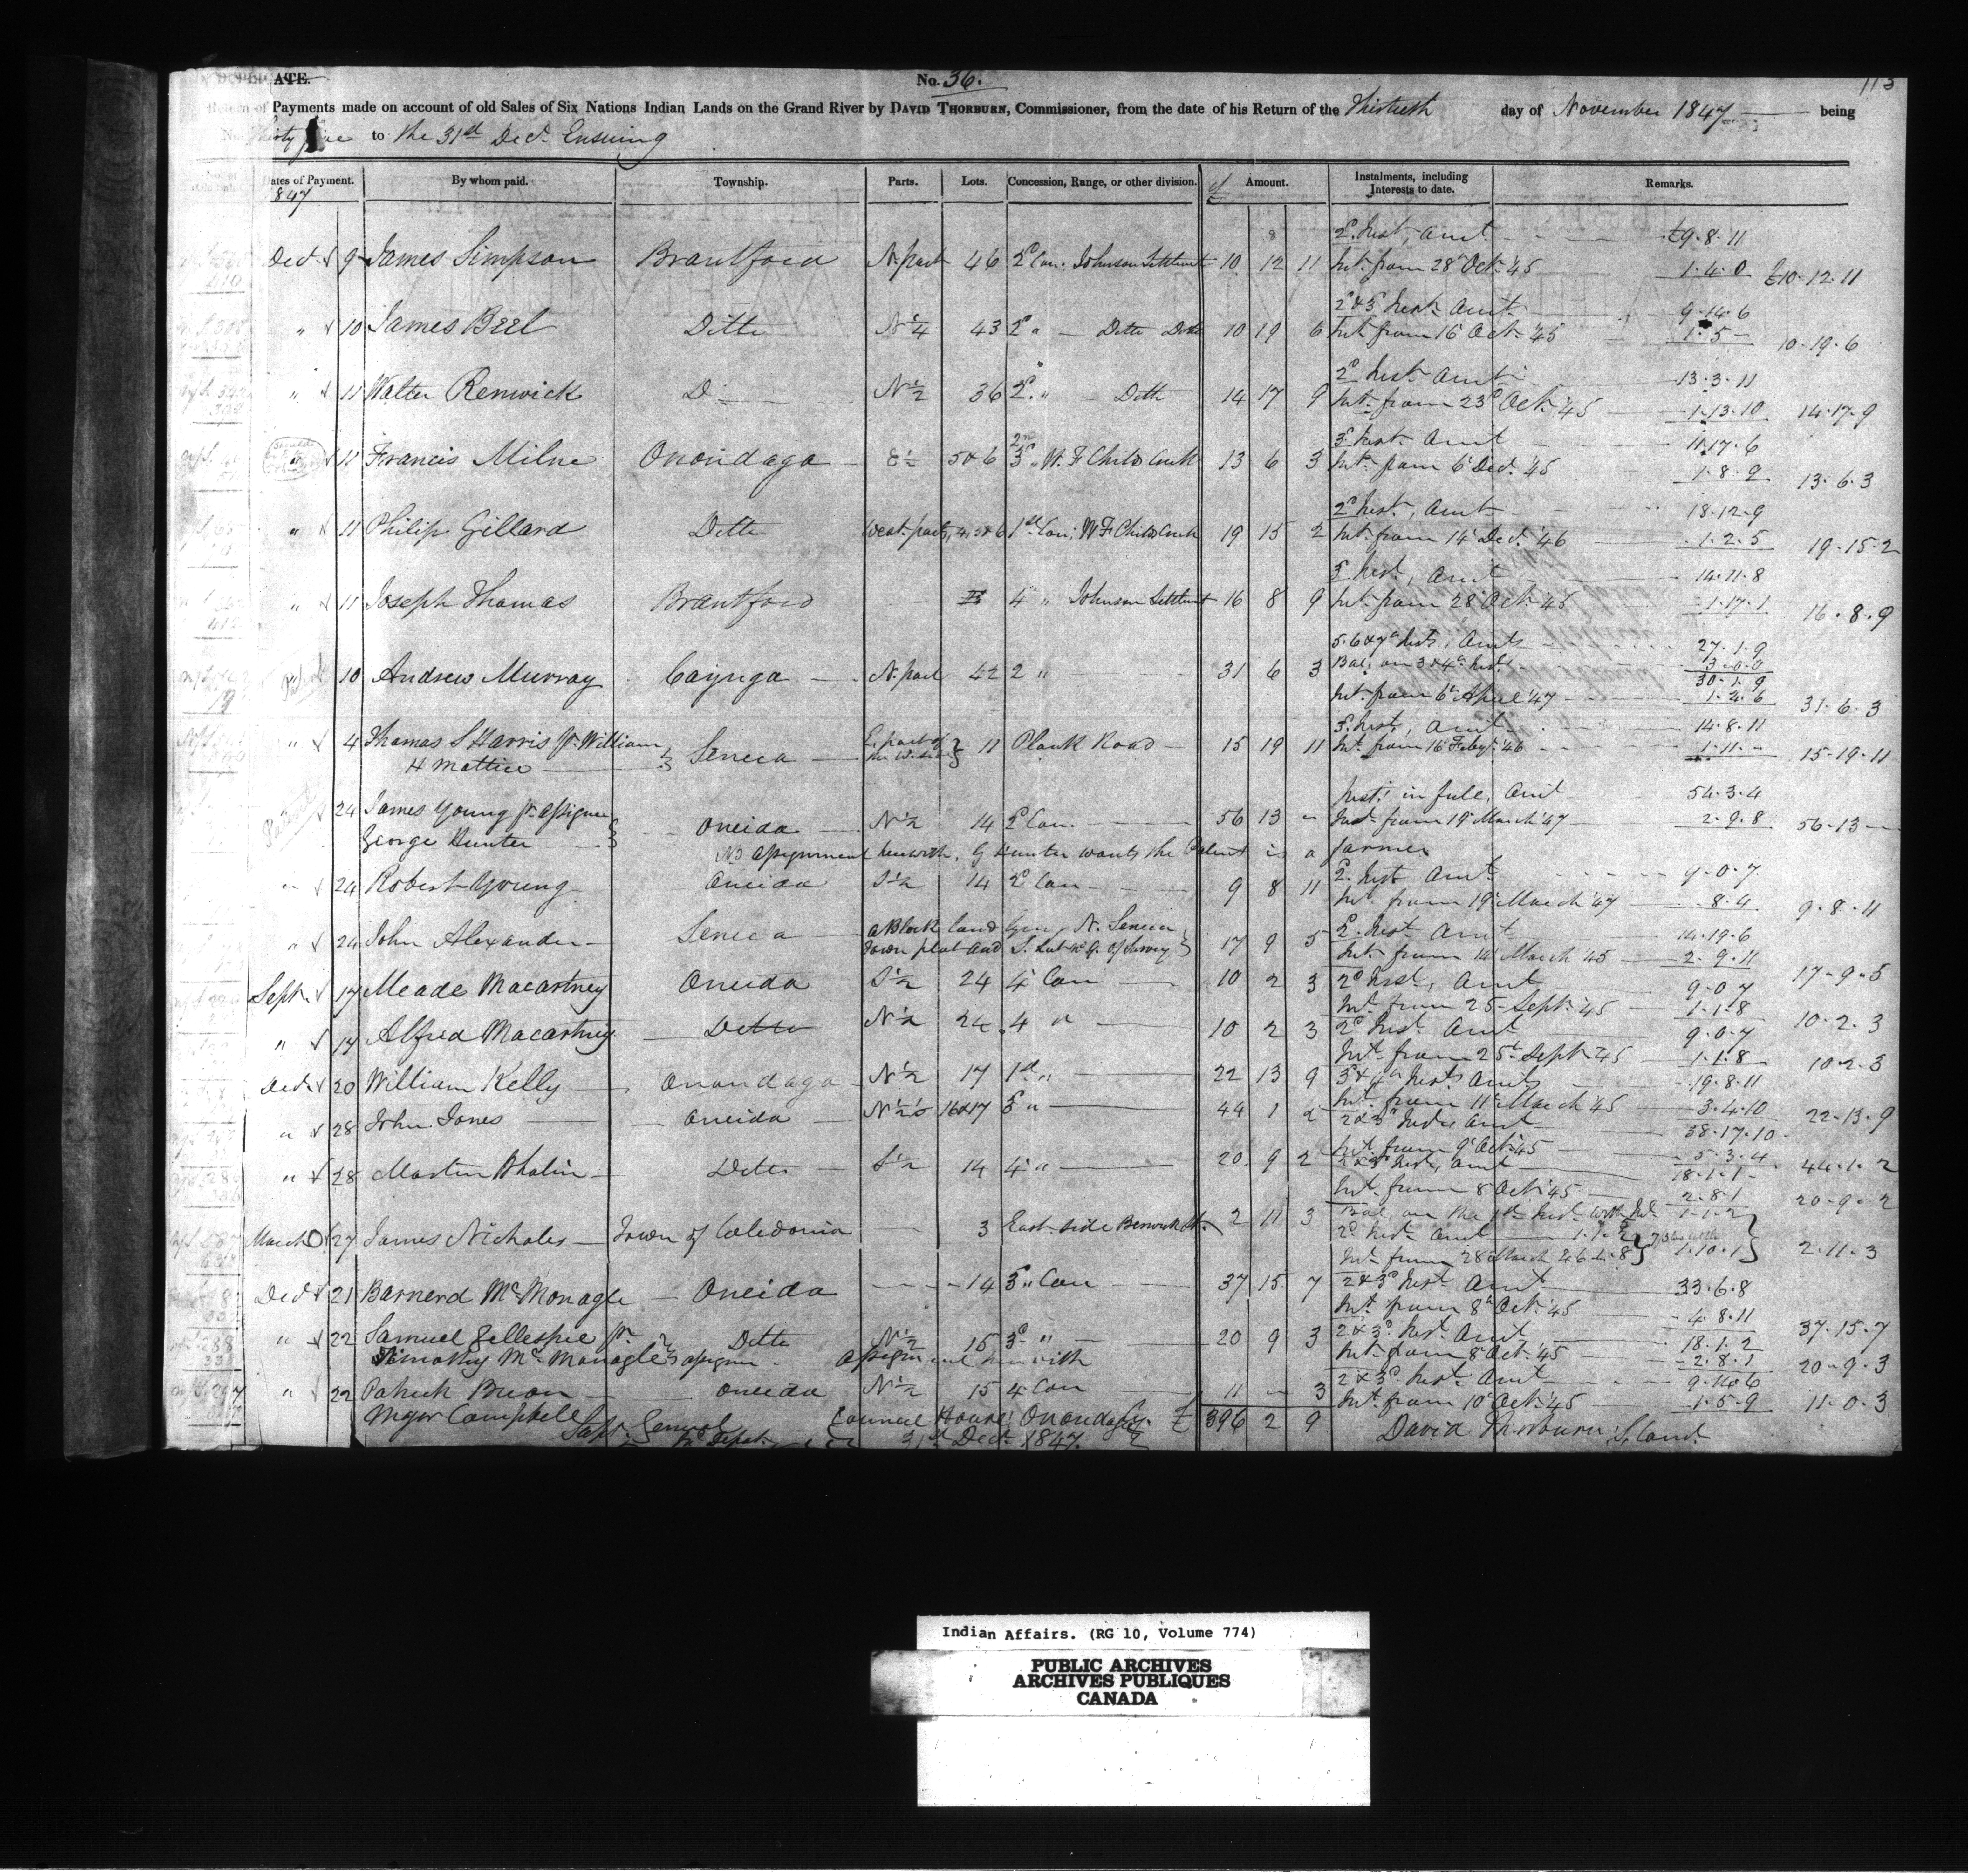 DUPLICATE.
No. 36.
113
Return of Payments made on account of old Sales of Six Nations Indian Lands on the Grand River by DAVID THORBURN, Commissioner, from the date of his Return of the Thirtieth day of November 1847 being
No. Thirty five to the 31st Decr. Ensuing
Dates of Payment. By whom paid. Township. Parts. Lots. Concession, Range, or other division. £ Amount. Instalments, including Interests to date. Remarks.
1847
2d. Inst, Amt £9.8.11
Dec 9 James Simpson Brantford N. part 46 2d Con. Johnson Settlmt 10 12 11 Int. from 28 Oct. '45 1.4.0 £10.12.11
2d & 3d Inst. Amt 9.14.6
" 10 James Bell Ditto N 1/4 43 2d " Ditto Ditto 10 19 6 Int. from 16 Oct. '45 1.5- 10.19.6
2d Inst. Amt 13.3.11
" 11 Walter Renwick D N 1/2 36 2d " Ditto 14 17 9 Int. from 23d Oct. '45 1.13.10 14.17.9
3d Inst. Amt 11.17.6
" 11 Francis Milne Onondaga E 1/2 5 & 6 3d " W. F Childs Creek 13 6 3 Int. from 6 Dec. '45 1.8.9 13.6.3
2d Inst, Amt 18.12.9
" 11 Philip Gillard Ditto West parts, 4, 5 & 6 1st Con; W F Childs Creek 19 15 2 Int. from 14 Dec. '46 1.2.5 19.15.2
3d Inst, Amt 14.11.8
" 11 Joseph Thomas Brantford 4 " Johnson Settlmt 16 8 9 Int. from 28 Oct. '45 1.17.1 16.8.9
5. 6 & 7th Insts, Amts 27.1.9
Patent 10 Andrew Murray Cayuga N. part 42 2 " 31 6 3 Bal. on 3 & 4th Inst. 3.0.0
30.1.9
Int. from 6 April '47 1.4.6 31.6.3
3d. Inst, Amt 14.8.11
" 4 Thomas S Harris pr. William Seneca E. part of 11 Plank Road 15 19 11 Int. from 16 Feby. '46 1.11.- 15.19.11
H Mattice the W. side
Inst. in full, Amt 54.3.4
Patent 24 James Young pr. Assignee Oneida N 1/2 14 2d Con. 56 13 " Int. from 19 March '47 2.9.8 56.13-
George Hunter NB Assignment herewith. G Hunter wants the Patent is a farmer
" 24 Robert Young Oneida S 1/2 14 2d Con 9 8 11 2d. Inst Amt 9.0.7
Int. from 19 March '47 8.4 9.8.11
" 24 John Alexander Seneca a Block land N. Seneca 17 9 5 2d. Inst Amt 14.19.6
Town plat and Int. from 14 March '45 2.9.11 17.9.5
Sept 17 Meade Macartney Oneida S 1/2 24 4 Con 10 2 3 2d Inst, Amt 9.0.7
Int. from 25 Sept. '45 1.1.8 10.2.3
" 17 Alfred Macartney Ditto N 1/2 24 4 " 10 2 3 2d Inst Amt 9.0.7
Int. from 25th Sept. 45 1.1.8 10.2.3
Dec 20 William Kelly Onondaga N 1/2 17 1st " 22 13 9 3d & 4th Insts Amts 19.8.11
Int. from 11 March '45 3.4.10 22.13.9
" 28 John Jones Oneida N 1/2s 16 & 17 3d " 44 1 2 2 & 3d Insts Amt 38.17.10
Int. from 9 Oct. '45 5.3.4 44.1.2
" 28 Martin Phalin Ditto S 1/2 14 4 " 20 9 2 2 & 3d Inst, Amt 18.1.1
Int. from 8 Oct. '45 2.8.1 20.9.2
March 27 James Nicholes Town of Caledonia 3 East side Berwick St. 2 11 3 Bal. on the 1st Inst. with Int. 1.1.2
2d Inst Amt
Int. from 28 March 46 1.10.1 2.11.3
Dec 21 Barnerd McMonagle Oneida 14 3d " Con 37 15 7 2 & 3d Inst. Amt 33.6.8
Int. from 8 Oct. '45 4.8.11 37.15.7
" 22 Samuel Gellespie pr. Ditto N 1/2 15 3d " 20 9 3 2 & 3d. Inst. Amt 18.1.2
Timothy McMonagle assignee Assignment herewith Int. from 8 Oct. '45 2.8.1 20.9.3
" 22 Patrick Bueon Oneida N 1/2 15 4 Con 11 - 3 2 & 3d. Inst. Amt
Int. from 10 Oct. '45 1.5.9 11.0.3
Major Campbell Council House Onondaga £396 2 9 David Thorburn
31st Dect. 1847.
Indian Affairs. (RG 10, Volume 774)
PUBLIC ARCHIVES
ARCHIVES PUBLIQUES
CANADA